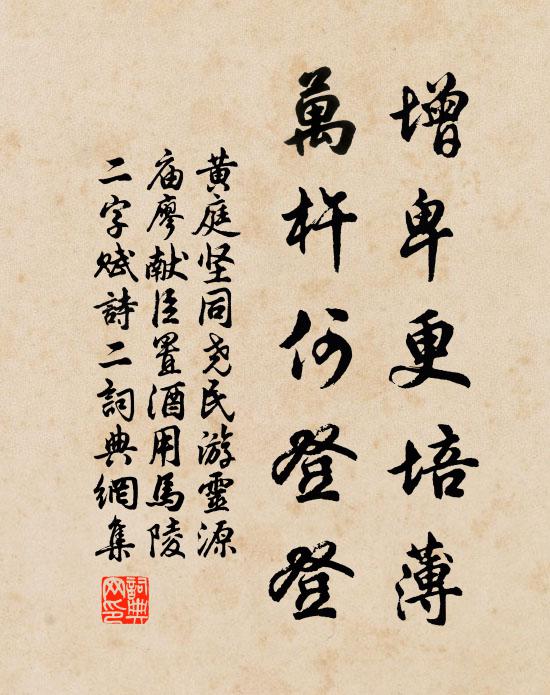 增卑更培薄
萬杵何登登
黄庭坚同尧民游靈源
庙廖献臣置酒用馬陵
二字赋詩二詞典網集
詞典網印